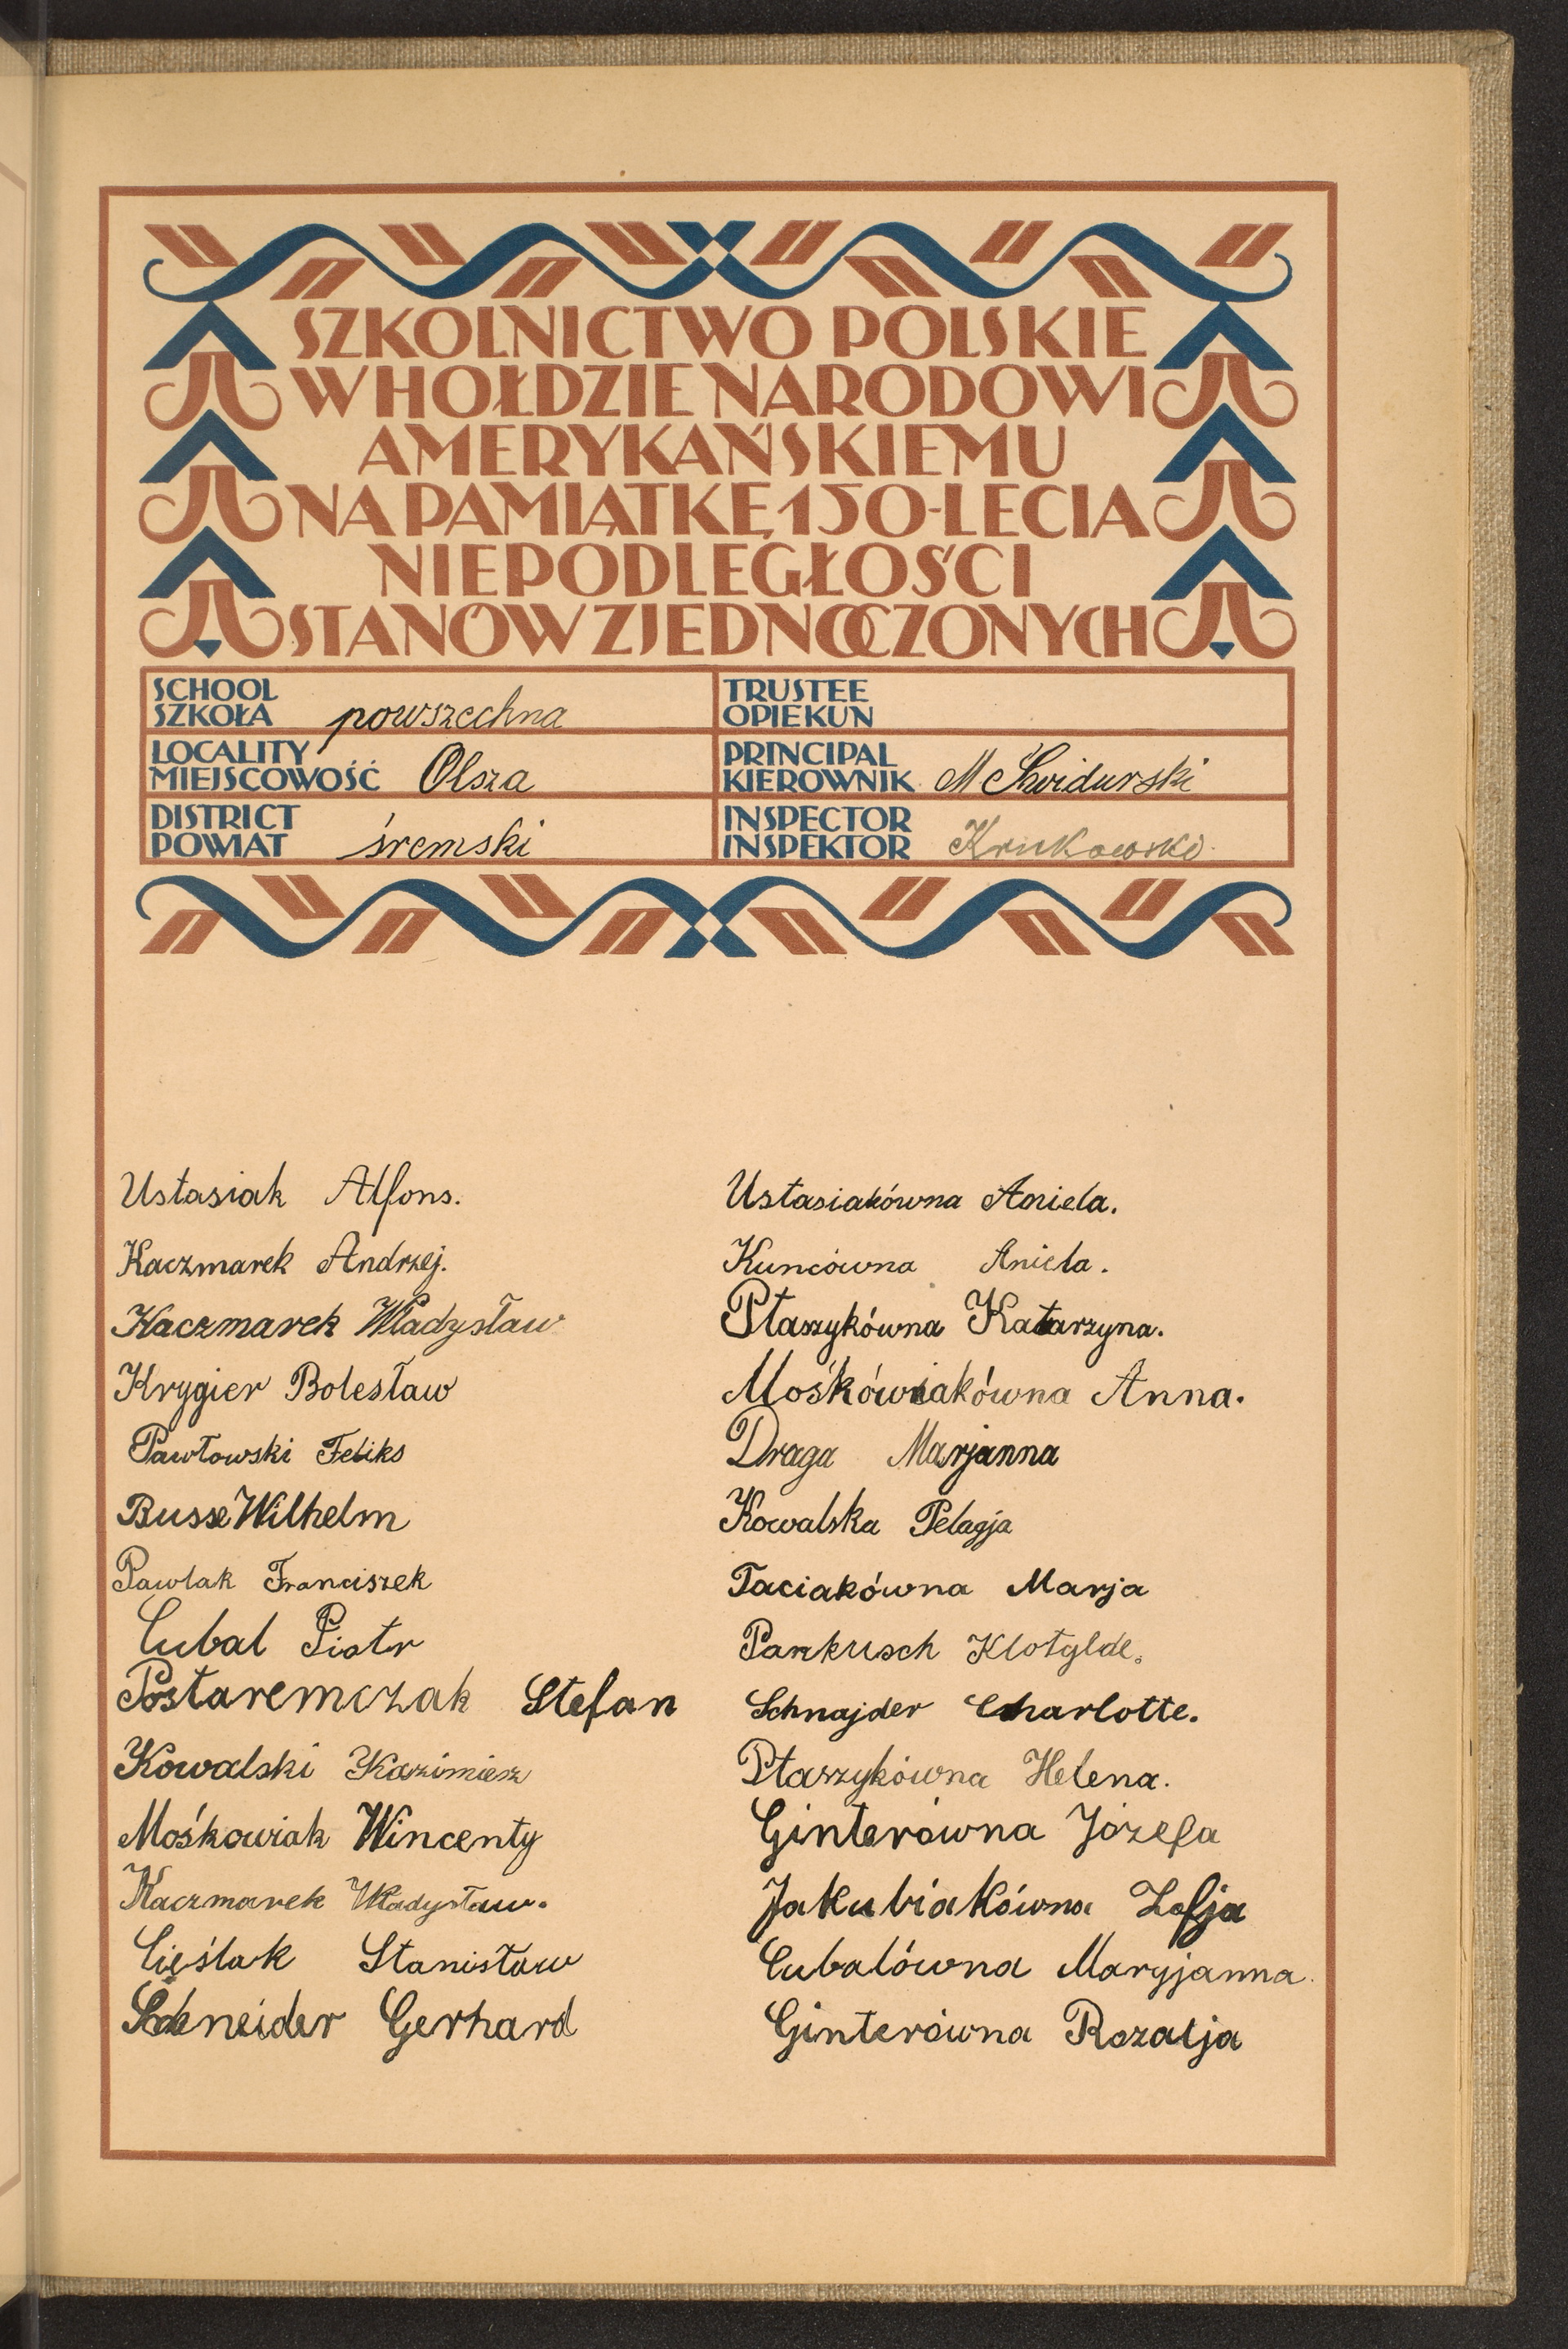 SZKOLNICTWO POLSKIE
W HOŁDZIE NARODOWI
AMERYKAŃSKIEMU
NA PAMIĄTKĘ 150-LECIA
NIEPODLEGŁOŚCI
STANÓW ZJEDNOCZONYCH
SCHOOL
SZKOŁA powszechna
TRUSTEE
OPIEKUN
LOCALITY
MIEJSCOWOŚĆ Olsza
PRINCIPAL
KIEROWNIK M Świdurski
DISTRICT
POWIAT śremski
INSPECTOR
INSPEKTOR Krukowski
Ustasiak Alfons.
Kaczmarek Andrzej.
Kaczmarek Władysław
Krygier Bolesław
Pawłowski Feliks
Busse Wilhelm
Pawlak Franciszek
Cubal Piotr
Postaremczak Stefan
Kowalski Kazimierz
Mośkowiak Wincenty
Kaczmarek Władysław.
Cieślak Stanisław
Schneider Gerhard
Ustasiakówna Aniela.
Kuncówna Aniela.
Ptaszykówna Katarzyna.
Mośkówiakówna Anna.
Draga Marjanna
Kowalska Pelagja
Taciakówna Marja
Pankrusch Klotylde.
Schnajder Charlotte.
Ptaszykówna Helena.
Ginterówna Józefa
Jakubiakówna Zofja
Cubalówna Maryjanna.
Ginterówna Rozalja